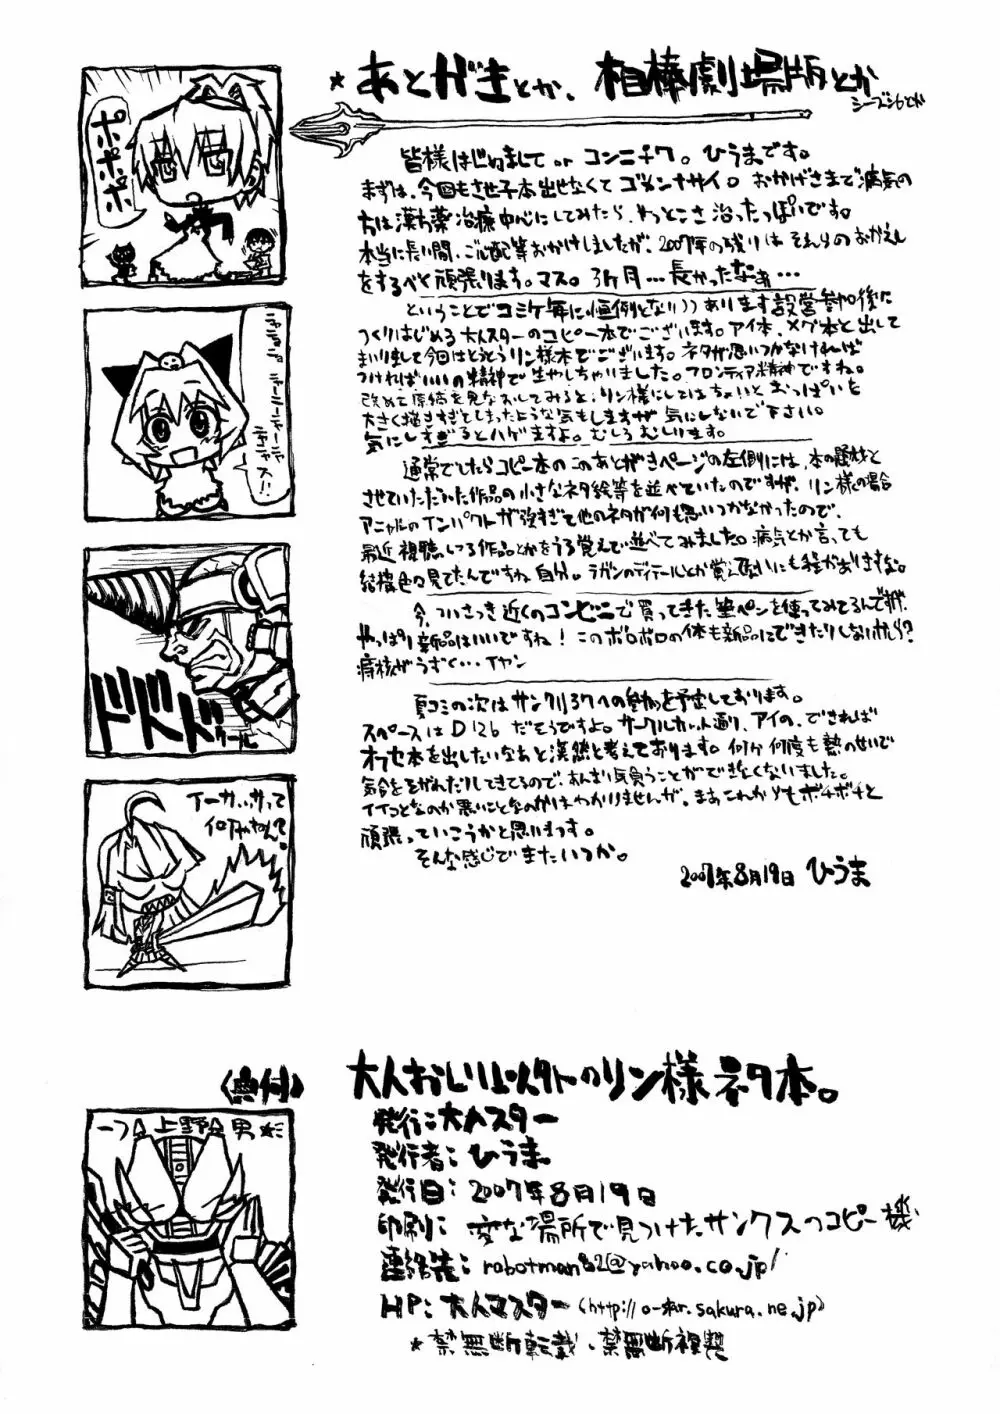 ★あとがきとか、相棒劇場版とか
シーズン6とか
皆様はじめまして or コンニチワ。ひうまです。
まずは、今回もさせ子本出せなくてゴメンナサイ。おかげさまで病気の
方は漢方薬治療中心にしてみたら、やっとこさ治ったっぽいです。
本当に長い間、ご心配等おかけしましたが、2007年の残りはそれらのおかえし
をするべく頑張ります。マス。3ヶ月…長かったなぁ…
ということでコミケ毎に恒例となり))あります設営参加後に
つくりはじめる大人スターのコピー本でございます。アイ本、メグ本と出して
まいりまして今回はとうとうリン様本でございます。ネタが思いつかなければ
つければいいの精神で生やしちゃいました。フロンティア精神ですね。
改めて原稿を見なおしてみると、リン様にしてはちょいとおっぱいを
大きく描きすぎてしまったような気もしますが気にしないで下さい。
気にしすぎるとハゲますよ。むしろむしります。
通常でしたらコピー本のこのあとがきページの左側には、本の題材と
させていただいた作品の小さなネタ絵等を並べていたのですが、リン様の場合
アニャルのインパクトが強すぎて他のネタが何も思いつかなかったので、
最近視聴している作品とかをうる覚えで並べてみました。病気とか言っても
結構色々見てたんですね自分。ラガンのディテールとか覚えて無いにも程がありますな。
今、ついさっき近くのコンビニで買ってきた筆ペンを使ってみてるんですが、
やっぱり新品はいいですね!このボロボロの体も新品にできたりしないかしら?
痔核がうずく…イヤン
夏コミの次はサンクリ37への参加を予定しております。
スペースは D12b だそうですよ。サークルカット通り、アイの、できれば
オフセ本を出したいなぁと漠然と考えております。何分何度も熱のせいで
気合をそがれたりしてきてるので、あんまり気負うことができなくないました。
イイコとなのか悪いことなのかはわかりませんが、まあこれからもボチボチと
頑張っていこうかと思います。
そんな感じでまたいつか。
2007年8月19日 ひうま
ポポポポ
ニャーニャーニャーニャ
ニャス!!
ドドドド
ゥールル
イーガ、サって
何やねん?
〈奥付〉
一つ星 上野星男★ミ
大人おしり以外のリン様ネタ本。
発行:大人スター
発行者:ひうま
発行日:2007年8月19日
印刷:変な場所で見つけたサンクスのコピー機
連絡先:robotman82@yahoo.co.jp/
HP:大人マスター(http://o-star.sakura.ne.jp)
★禁無断転載・禁無断複製